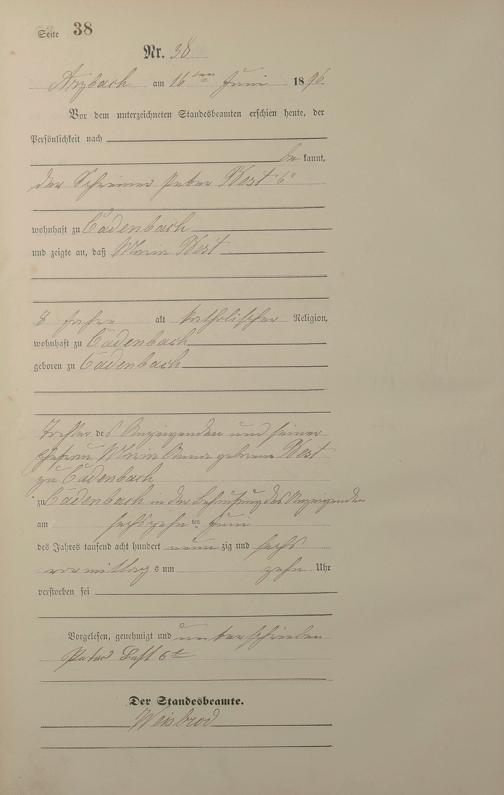 Seite 38
Nr. 38
Arzbach am 16ten Juni 1896
Vor dem unterzeichneten Standesbeamten erschien heute, der
Persönlichkeit nach
be kannt,
der Schreiner Peter
wohnhaft zu Cadenbach
und zeigte an, daß Maria
8 Jahre alt katholischer Religion,
wohnhaft zu Cadenbach
geboren zu Cadenbach
Tochter des Anzeigenden und seiner
Ehefrau Maria Anna geborene
zu Cadenbach
zu Cadenbach in der Behausung des Anzeigenden
am sechszehnten Juni
des Jahres tausend acht hundert neunzig und sechs
vormittags um zehn Uhr
verstorben sei
Vorgelesen, genehmigt und unterschrieben
Peter
Der Standesbeamte.
Weisbrod